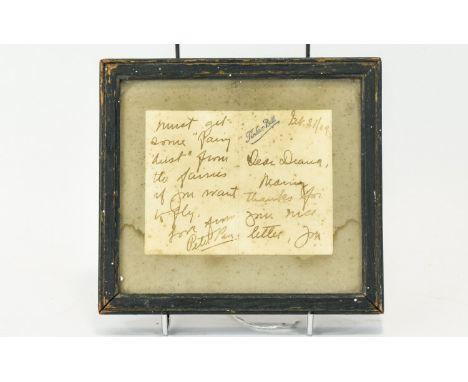 Tinker-Bell
Feb. 21/09
Dear Diana,
Many
thanks for
your nice
letter, you
must get
some "Fairy
dust" from
the fairies
if you want
to fly.
Love from
Peter Pan